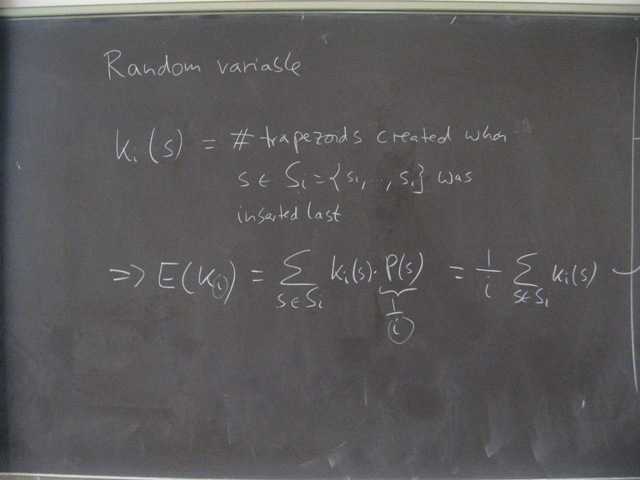 Random variable
ki(s) = # trapezoids created when
s ∈ Si = {s1, .., si} was
inserted last
=> E(ki) = ∑ s∈Si ki(s) · P(s) = 1/i ∑ s∈Si ki(s)
1/i